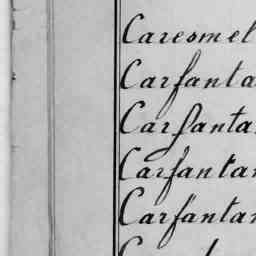 Careomel
Carfanta
Carfanta
Carfantan
Carfantan